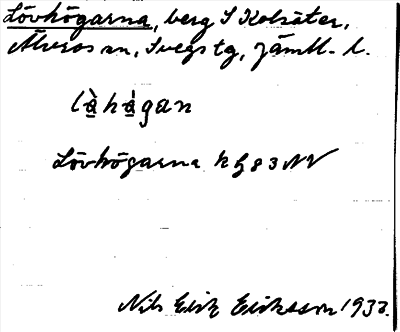 Lövhögarna, berg S Kolsäter,
Älvros sn, Svegs tg, Jämtl. l.
là̱há̱gan
Lövhögarna h G 83 NV
Nils Erik Eriksson 1933.